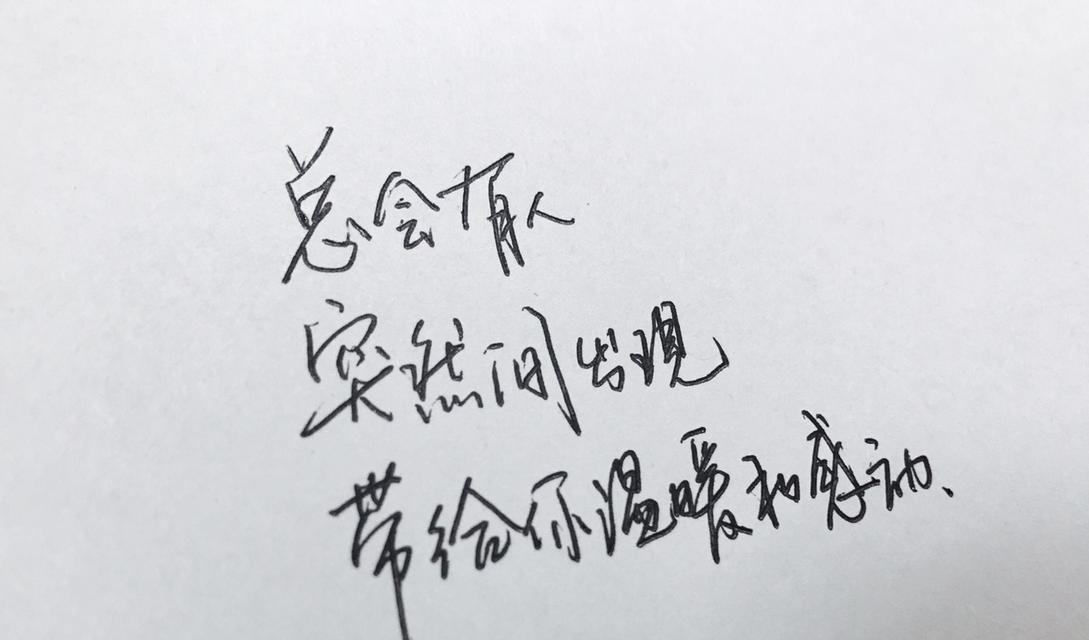 总会有人
突然间出现
带给你温暖和感动、